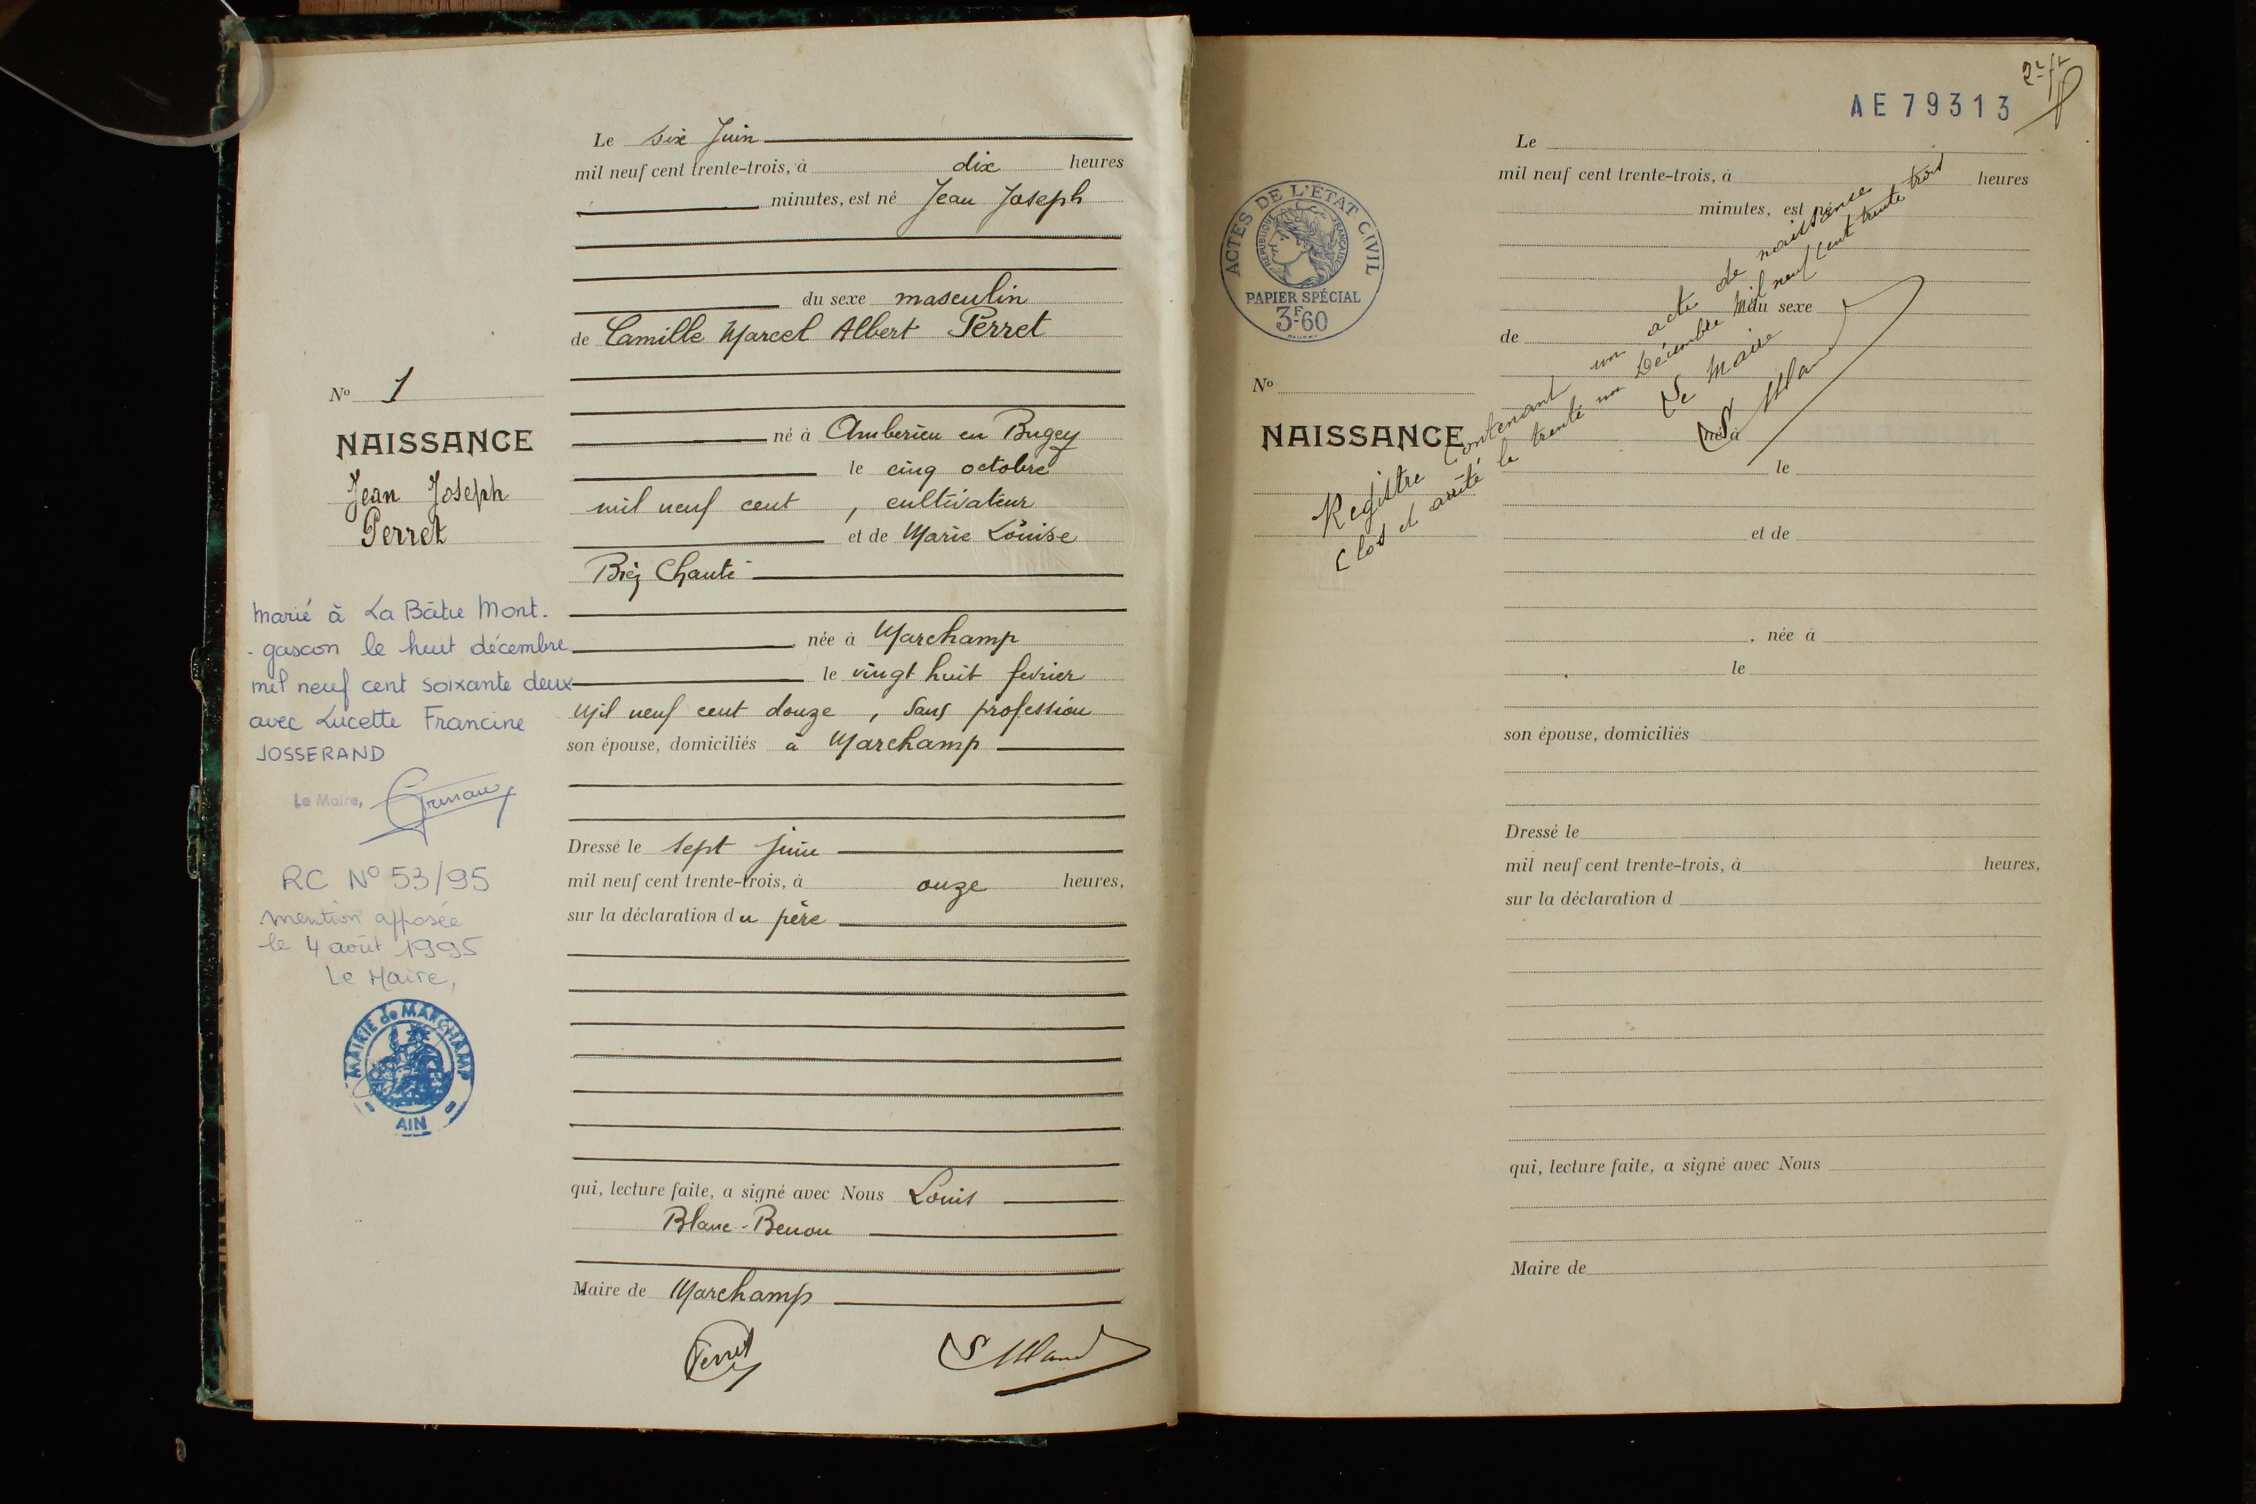 Le six Juin
mil neuf cent trente-trois, à dix heures
minutes, est né Jean Joseph
du sexe masculin
de Camille Marcel Albert Perret
né à Amberieu en Bugey
le cinq octobre
mil neuf cent , cultivateur
et de Marie Louise
née à Marchamp
le vingt huit fevrier
mil neuf cent douze , sans profession
son épouse, domiciliés à Marchamp
Dressé le sept juin
mil neuf cent trente-trois, à onze heures,
sur la déclaration du père
qui, lecture faite, a signé avec Nous Louis
Blanc-Benon
Maire de Marchamp
Perret
No 1
NAISSANCE
Jean Joseph
Perret
marié à La Bâtie Mont-
-gascon le huit décembre
mil neuf cent soixante deux
avec Lucette Francine
JOSSERAND
Le Maire,
RC No 53/95
mention apposée
le 4 août 1995
Le Maire,
MAIRIE de MARCHAMP
AIN
AE 79313
ACTES DE L'ETAT CIVIL
REPUBLIQUE FRANCAISE
PAPIER SPÉCIAL
3F60
No
NAISSANCE
Le
mil neuf cent trente-trois, à heures
minutes, est né
du sexe
de
né à
le
et de
, née à
le
son épouse, domiciliés
Dressé le
mil neuf cent trente-trois, à heures,
sur la déclaration d
qui, lecture faite, a signé avec Nous
Maire de
Registre contenant un acte de naissance
Clos et arrêté le trente un Décembre mil neuf cent trente trois
Le Maire